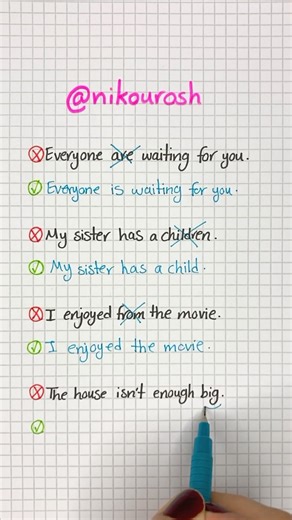 @nikourosh
Everyone are waiting for you.
Everyone is waiting for you.
My sister has a children.
My sister has a child.
I enjoyed from the movie.
I enjoyed the movie.
The house isn't enough big.